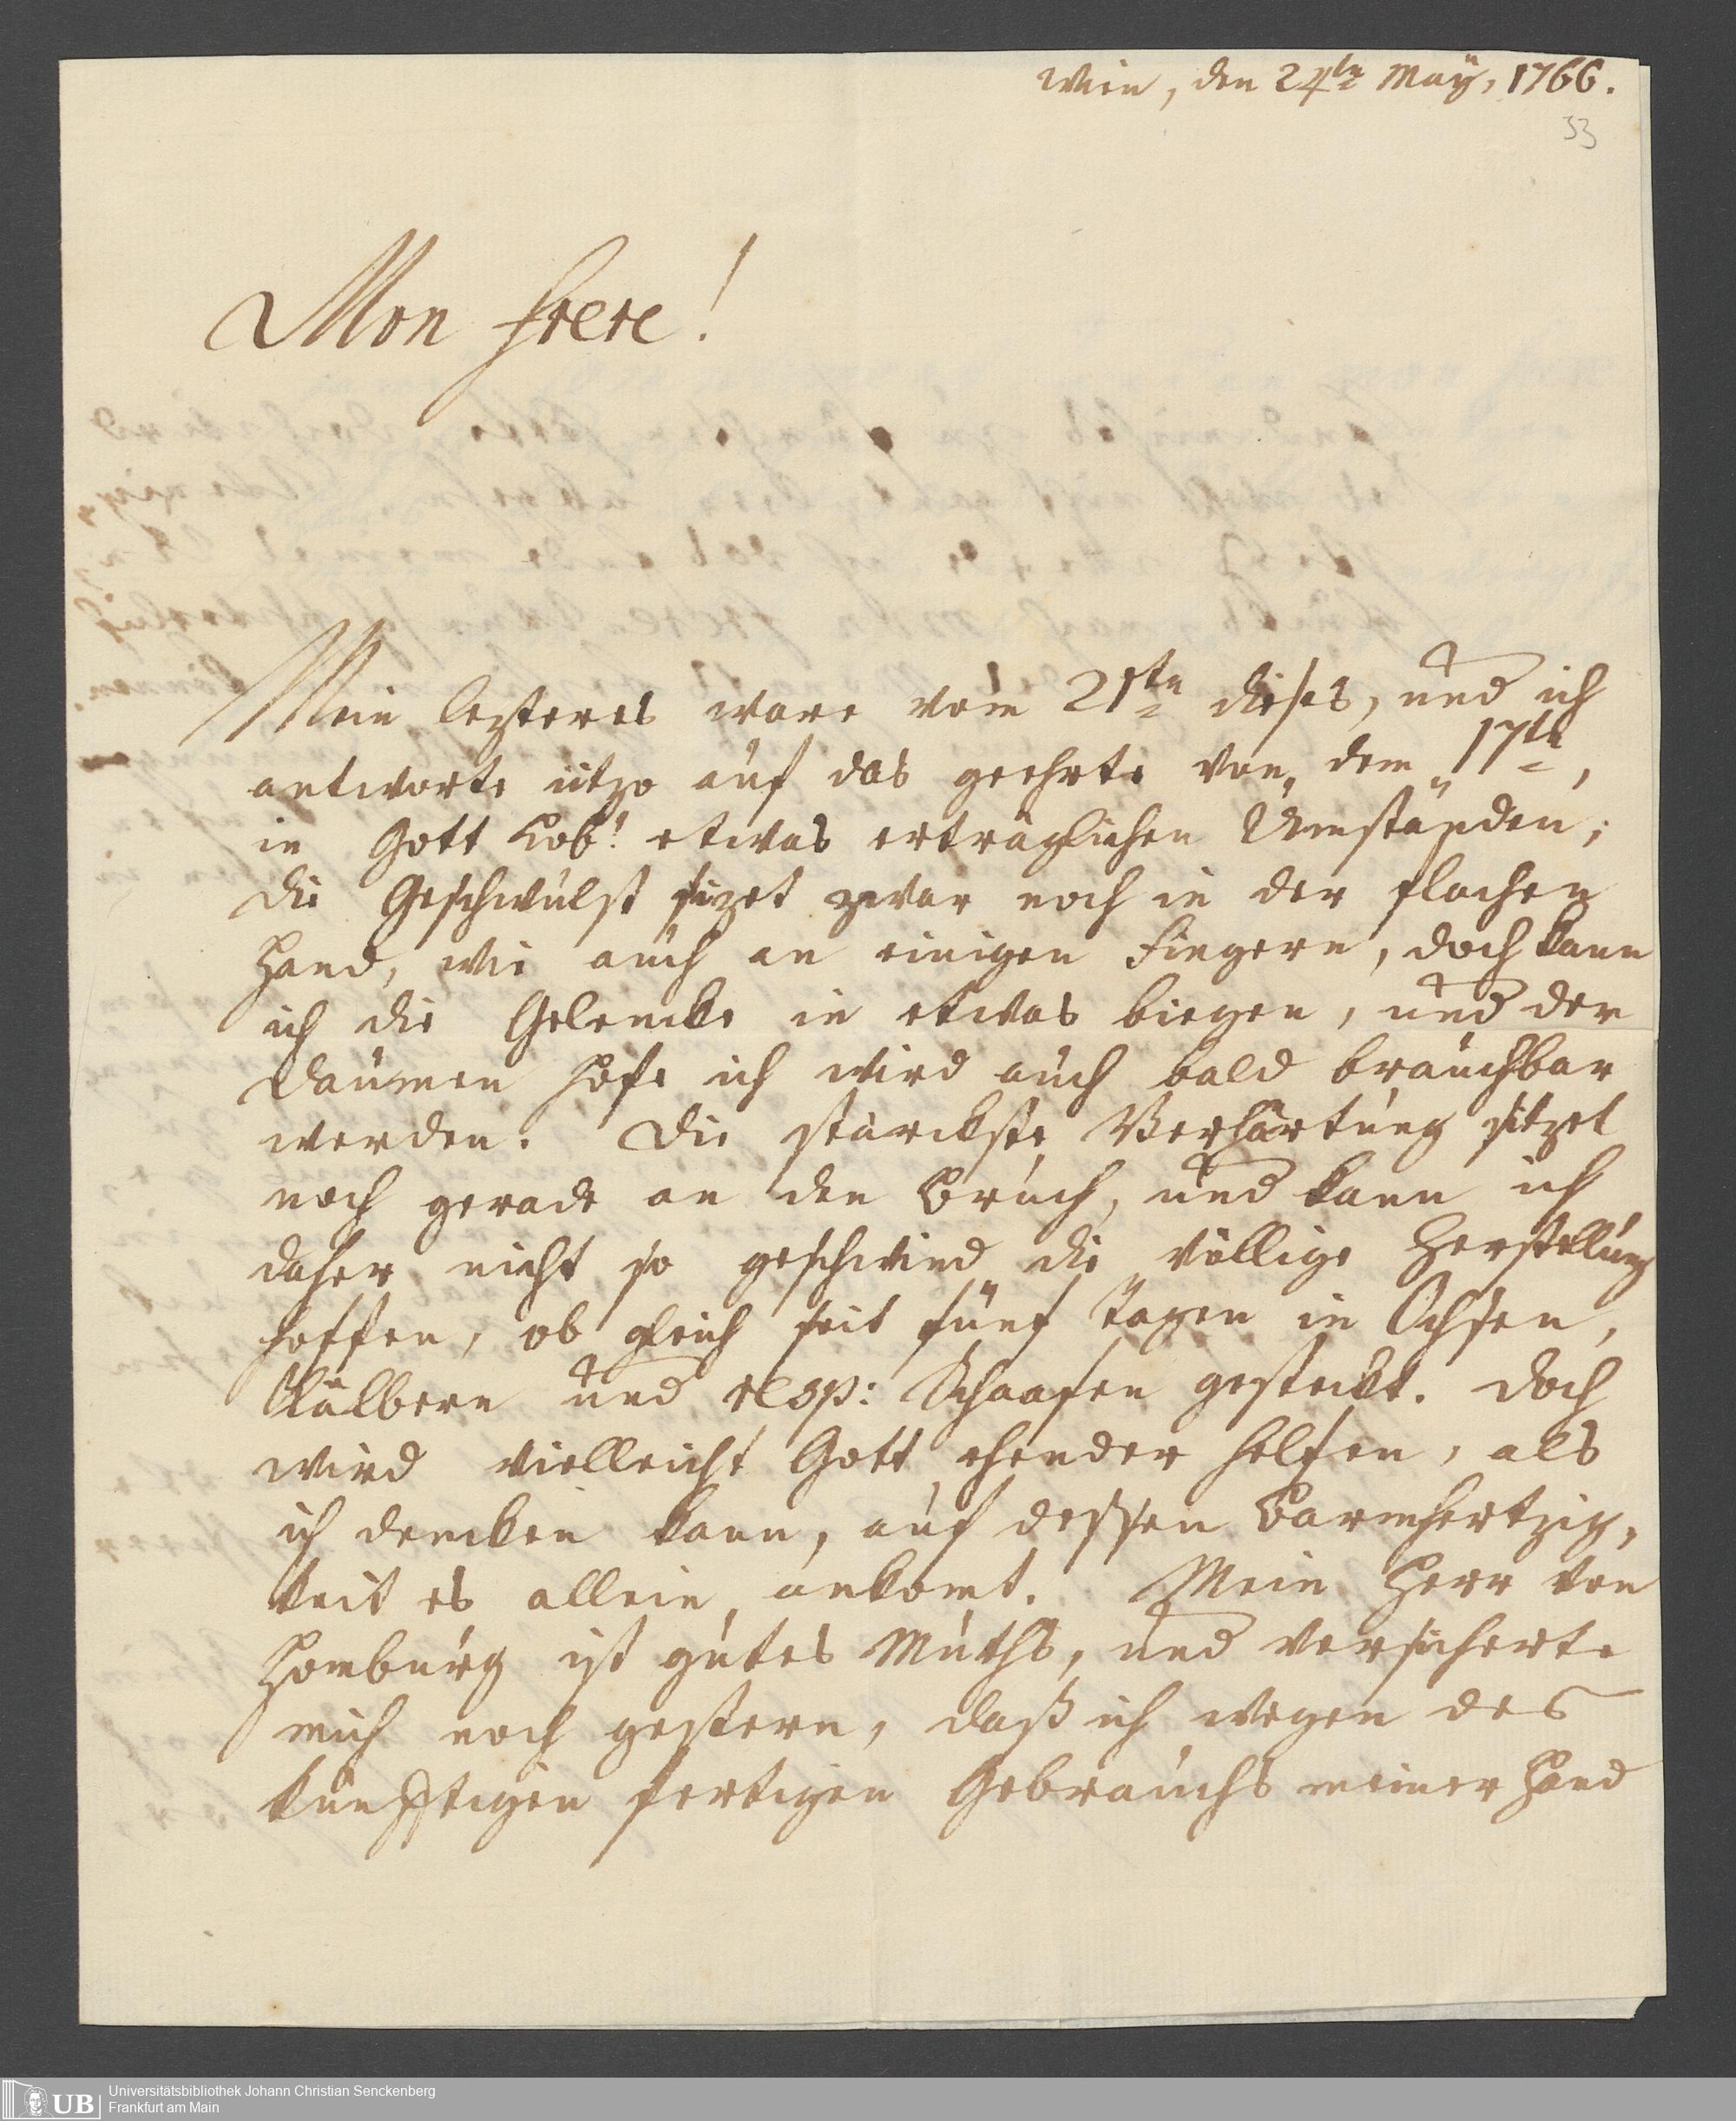 Wien, den 24ten Maÿ, 1766.
33
Mon frere!
Mein lezteres ware vom 21ten dieses, und ich
antworte iitzo auf das geehrte von dem 17ten,
in Gott Lob! etwas erträglichen Umständen;
die Geschwulst sizet zwar noch in der flachen
Hand, wie auch an einigen Fingern, doch kann
ich die Gelencke in etwas biegen, und der
Daumen hofe ich wird auch bald brauchbar
werden. Die stärckste Verhärtung sitzet
noch gerade an den Bruch, und kann ich
daher nicht so geschwind die völlige Herstellung
hoffen, ob gleich seit fünf Tagen in Ochsen,
Kälbern und resp: Schaafen gesteckt. Doch
wird vielleicht Gott ehender helfen, als
ich dencken kann, auf dessen Barmhertzig-
keit es allein ankomt. Mein Herr von
Homburg ist gutes Muths, und versicherte
mich noch gestern, daß ich wegen des
künfftigen fertigen Gebrauchs meiner Hand
UB
Universitätsbibliothek Johann Christian Senckenberg
Frankfurt am Main